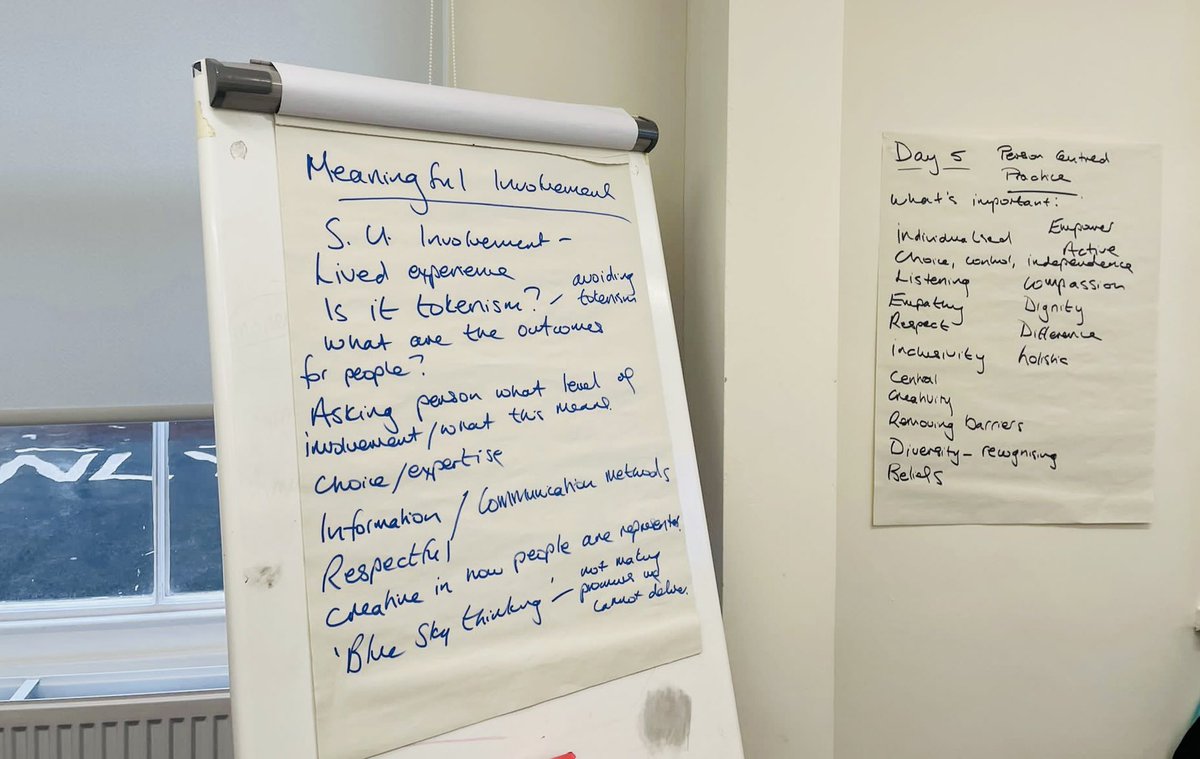 Meaningful Involvement
S.U. Involvement -
Lived experience
Is it tokenism? / avoiding tokenism
What are the outcomes
for people?
Asking person what level of
involvement/what this means.
Choice/expertise
Information / Communication methods
Respectful
Creative in how people are represented.
'Blue Sky thinking' - not making
promises we
cannot deliver.
Day 5 Person Centred
Practice
What's important:
Empower
Individualised Active
Choice, control, independence
Listening Compassion
Empathy Dignity
Respect Difference
Inclusivity holistic
Central
Creativity
Removing barriers
Diversity - recognising
Beliefs